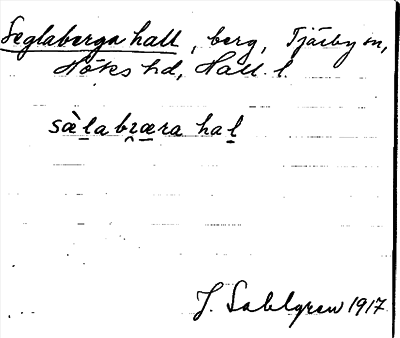 Seglaberga hall, berg, Tjärby sn,
Höks hd, Hall. l.
sæ̀l̲abræ̲ra hal̲
J. Sahlgren 1917